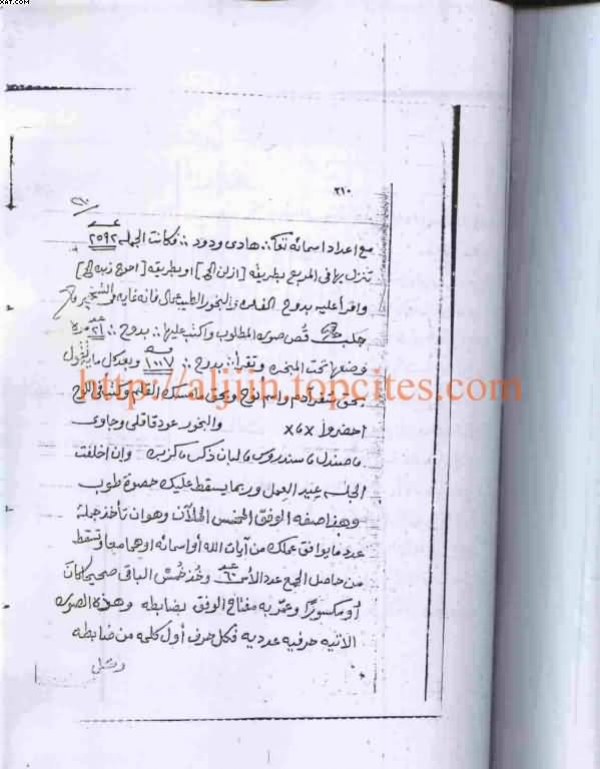 XAT.COM
٢١٠
مع اعداد اسمائه تعا هادى ودود فكانت الجمله ٢٥٩٢
تنزل بها فى المربع بطريقة او بطريقة
واقرأ عليه بدوح والبخور الطيب فانه غايه فى
جلب قص صورة المطلوب واكتب عليها بدوح مرة
وضعها تحت المبخره وتقرأ بدوح ١٠٠٧ وبعد كل ما تقول
بحق شفر آدم واسم نوح وبحق القلم وكتب فى اللوح
احضروا x٧x والبخور عود قاقلى وجاوى
صندل سندروس لبان ذكر كزبره وإن اخلفت
الجلسه عيد العمل وربما يسقط عليك حصوة طوب
وهذا صفه الوفق المخمس الملآن وهو ان تأخذ جملة
عدد ما يوافق عملك من آيات الله أو اسمائه اوهما معا وتسقط
من حاصل الجمع عدد الأس ٦٠ وخذ خمس الباقى صحيح كان
أو مكسورا وعمر به مفتاح الوفق بضابطه وهذه الصوره
الاتيه حرفيه عدديه فكل حرف أول كلمه من ضابطه
http://aljjin.topcites.com